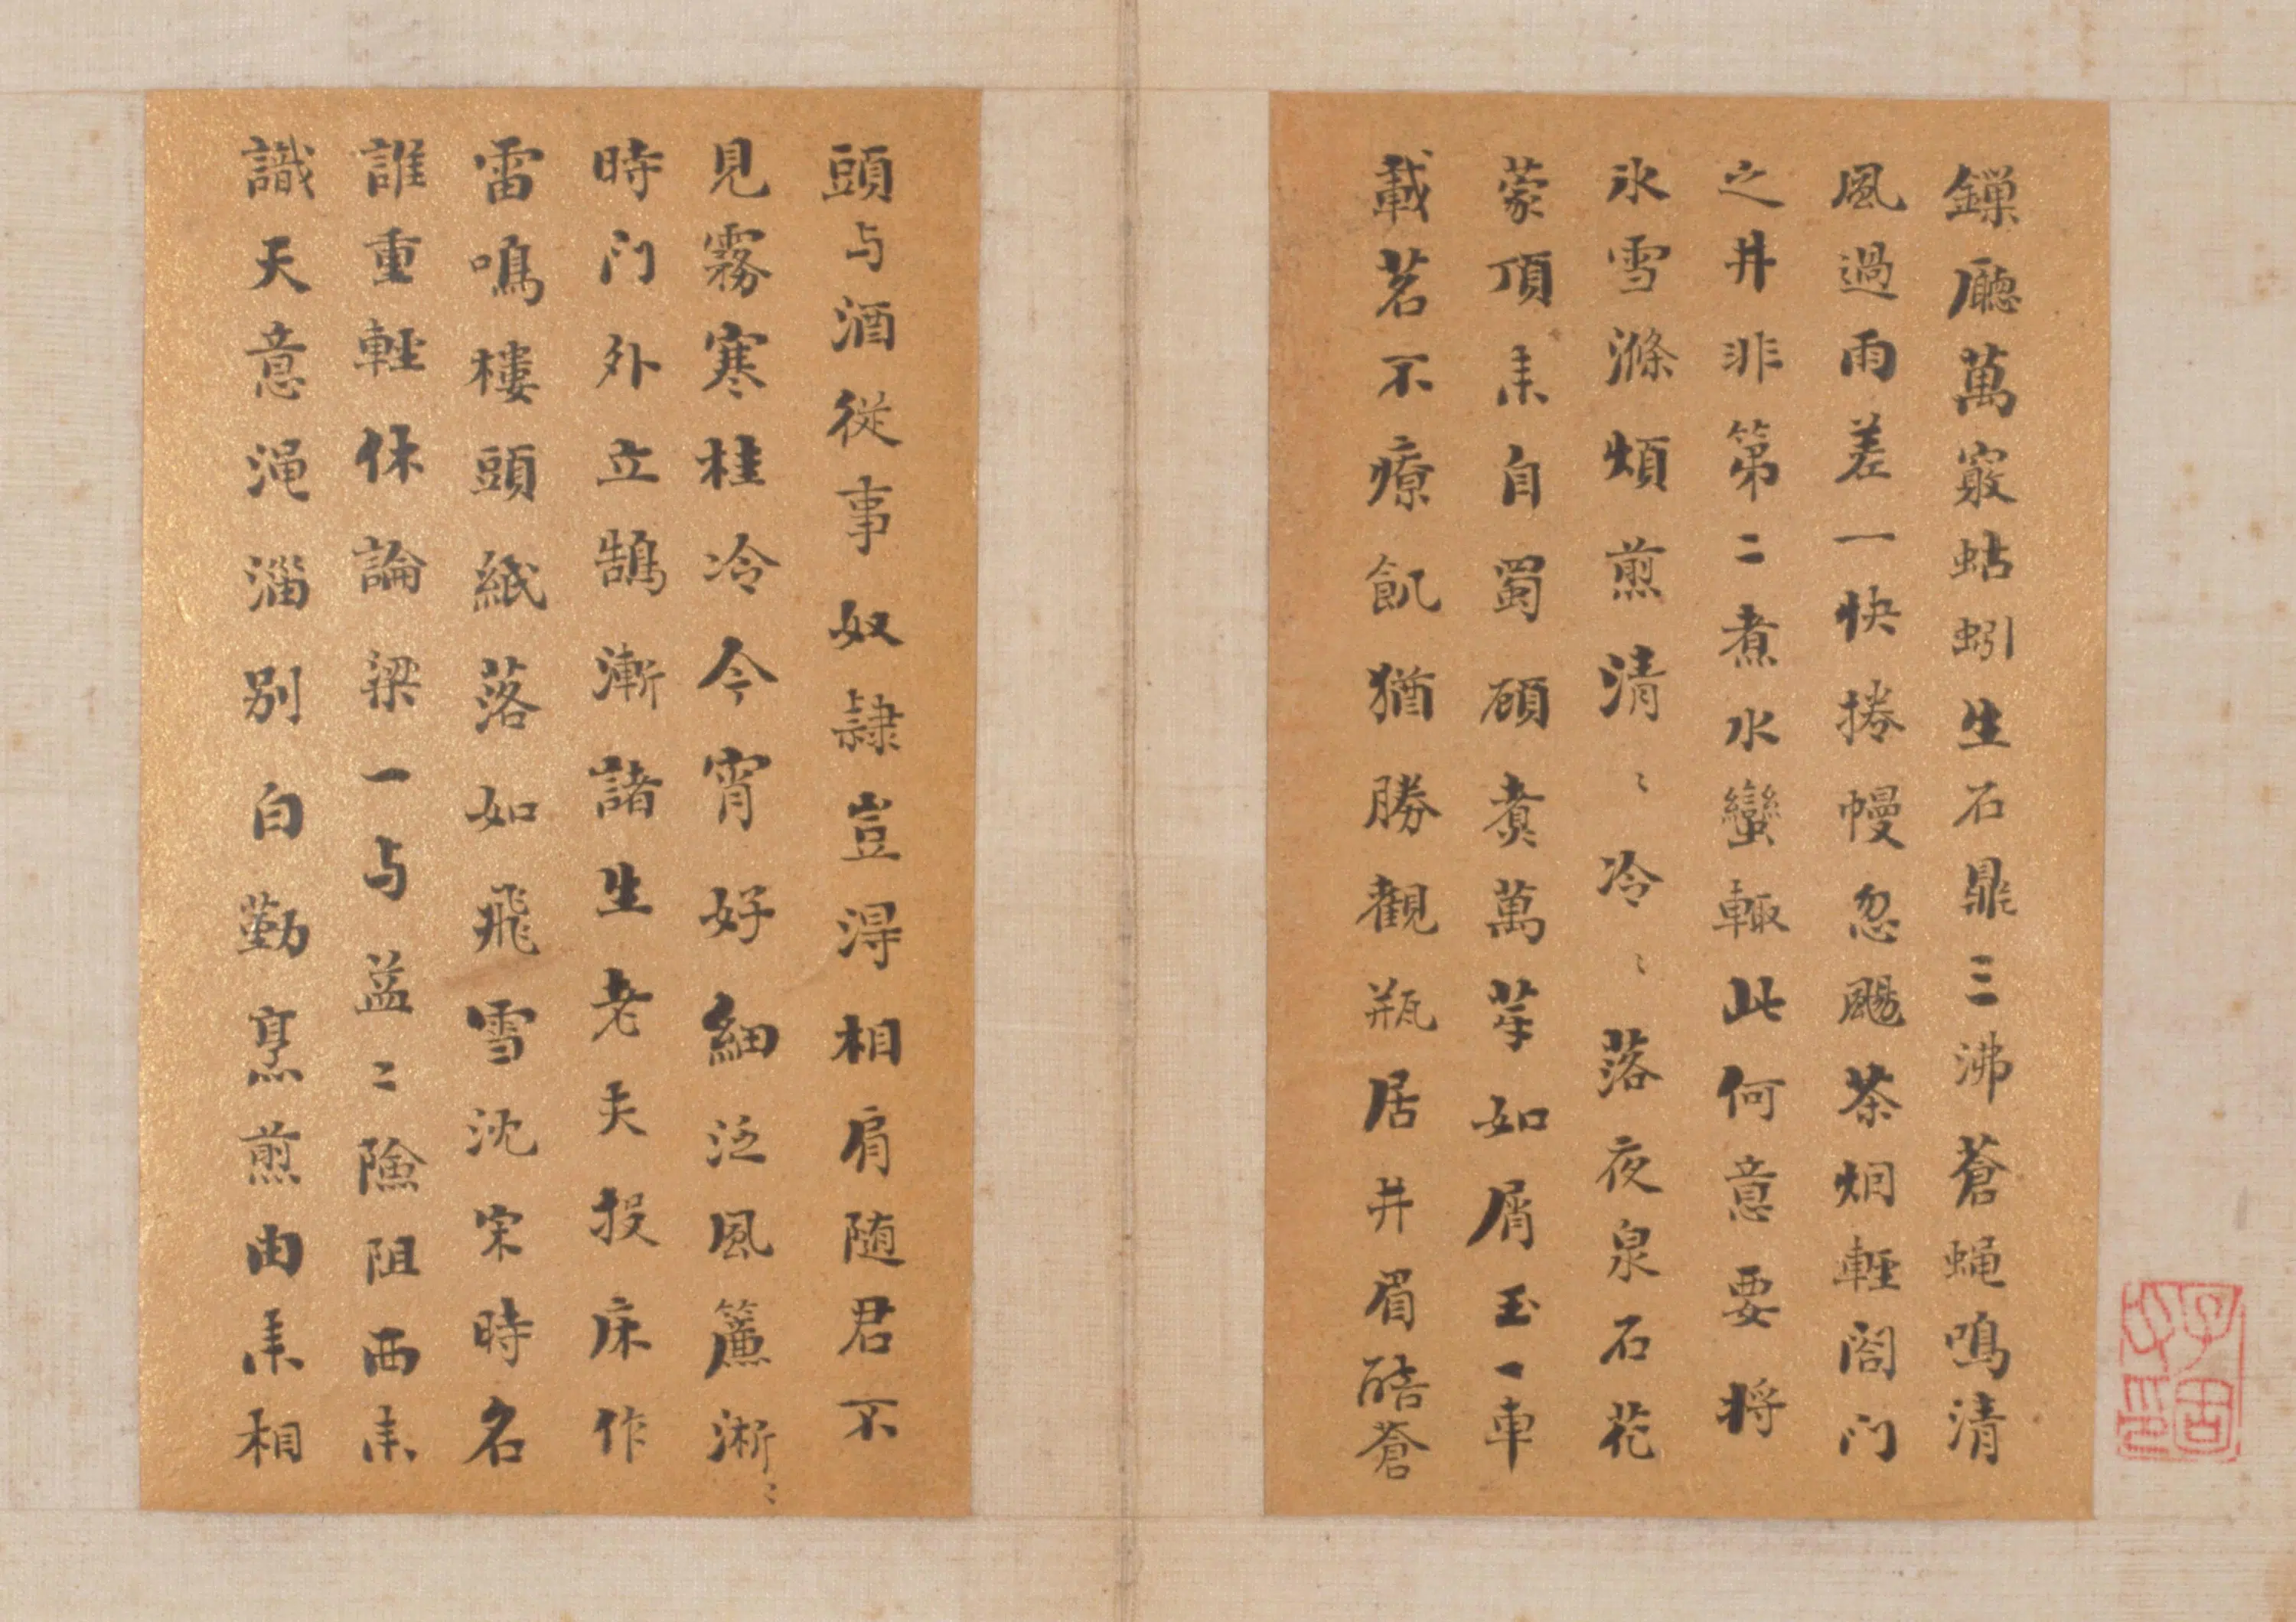 鏁廳萬竅蚯蚓生石鼎三沸蒼蝇鳴清
風過雨差一快捲幔忽颺茶烟輕閤门
之井非第二煮水蠻輙此何意要将
氷雪滌煩煎清〻冷〻落夜泉石花
蒙頂来自蜀顧煑萬芽如屑玉一車
載茗不療飢猶勝觀瓶居井眉醅蒼
頭与酒従事奴隷豈得相肩随君不
見霧寒桂冷今宵好細泛風簾淅〻
時门外立鵠漸諸生老夫投床作
雷鳴樓頭紙落如飛雪沈宋時名
誰重輕休論梁一与益二險阻西来
識天意渑淄别白勤烹煎由来相